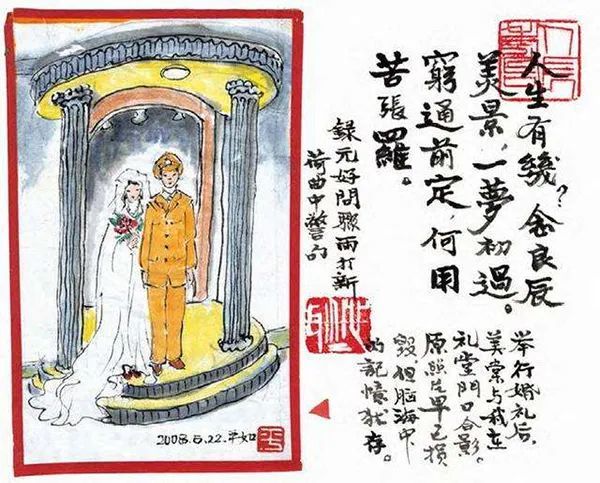 人生有幾？念良辰
美景，一夢初過。
窮通前定，何用
苦張羅。
錄元好問驟雨打新
荷曲中警句
举行婚礼后，
美棠与我在
礼堂門口合影。
原照片早已損
毀，但脑海中
的記憶犹
存。
2008.6.22.平如
平